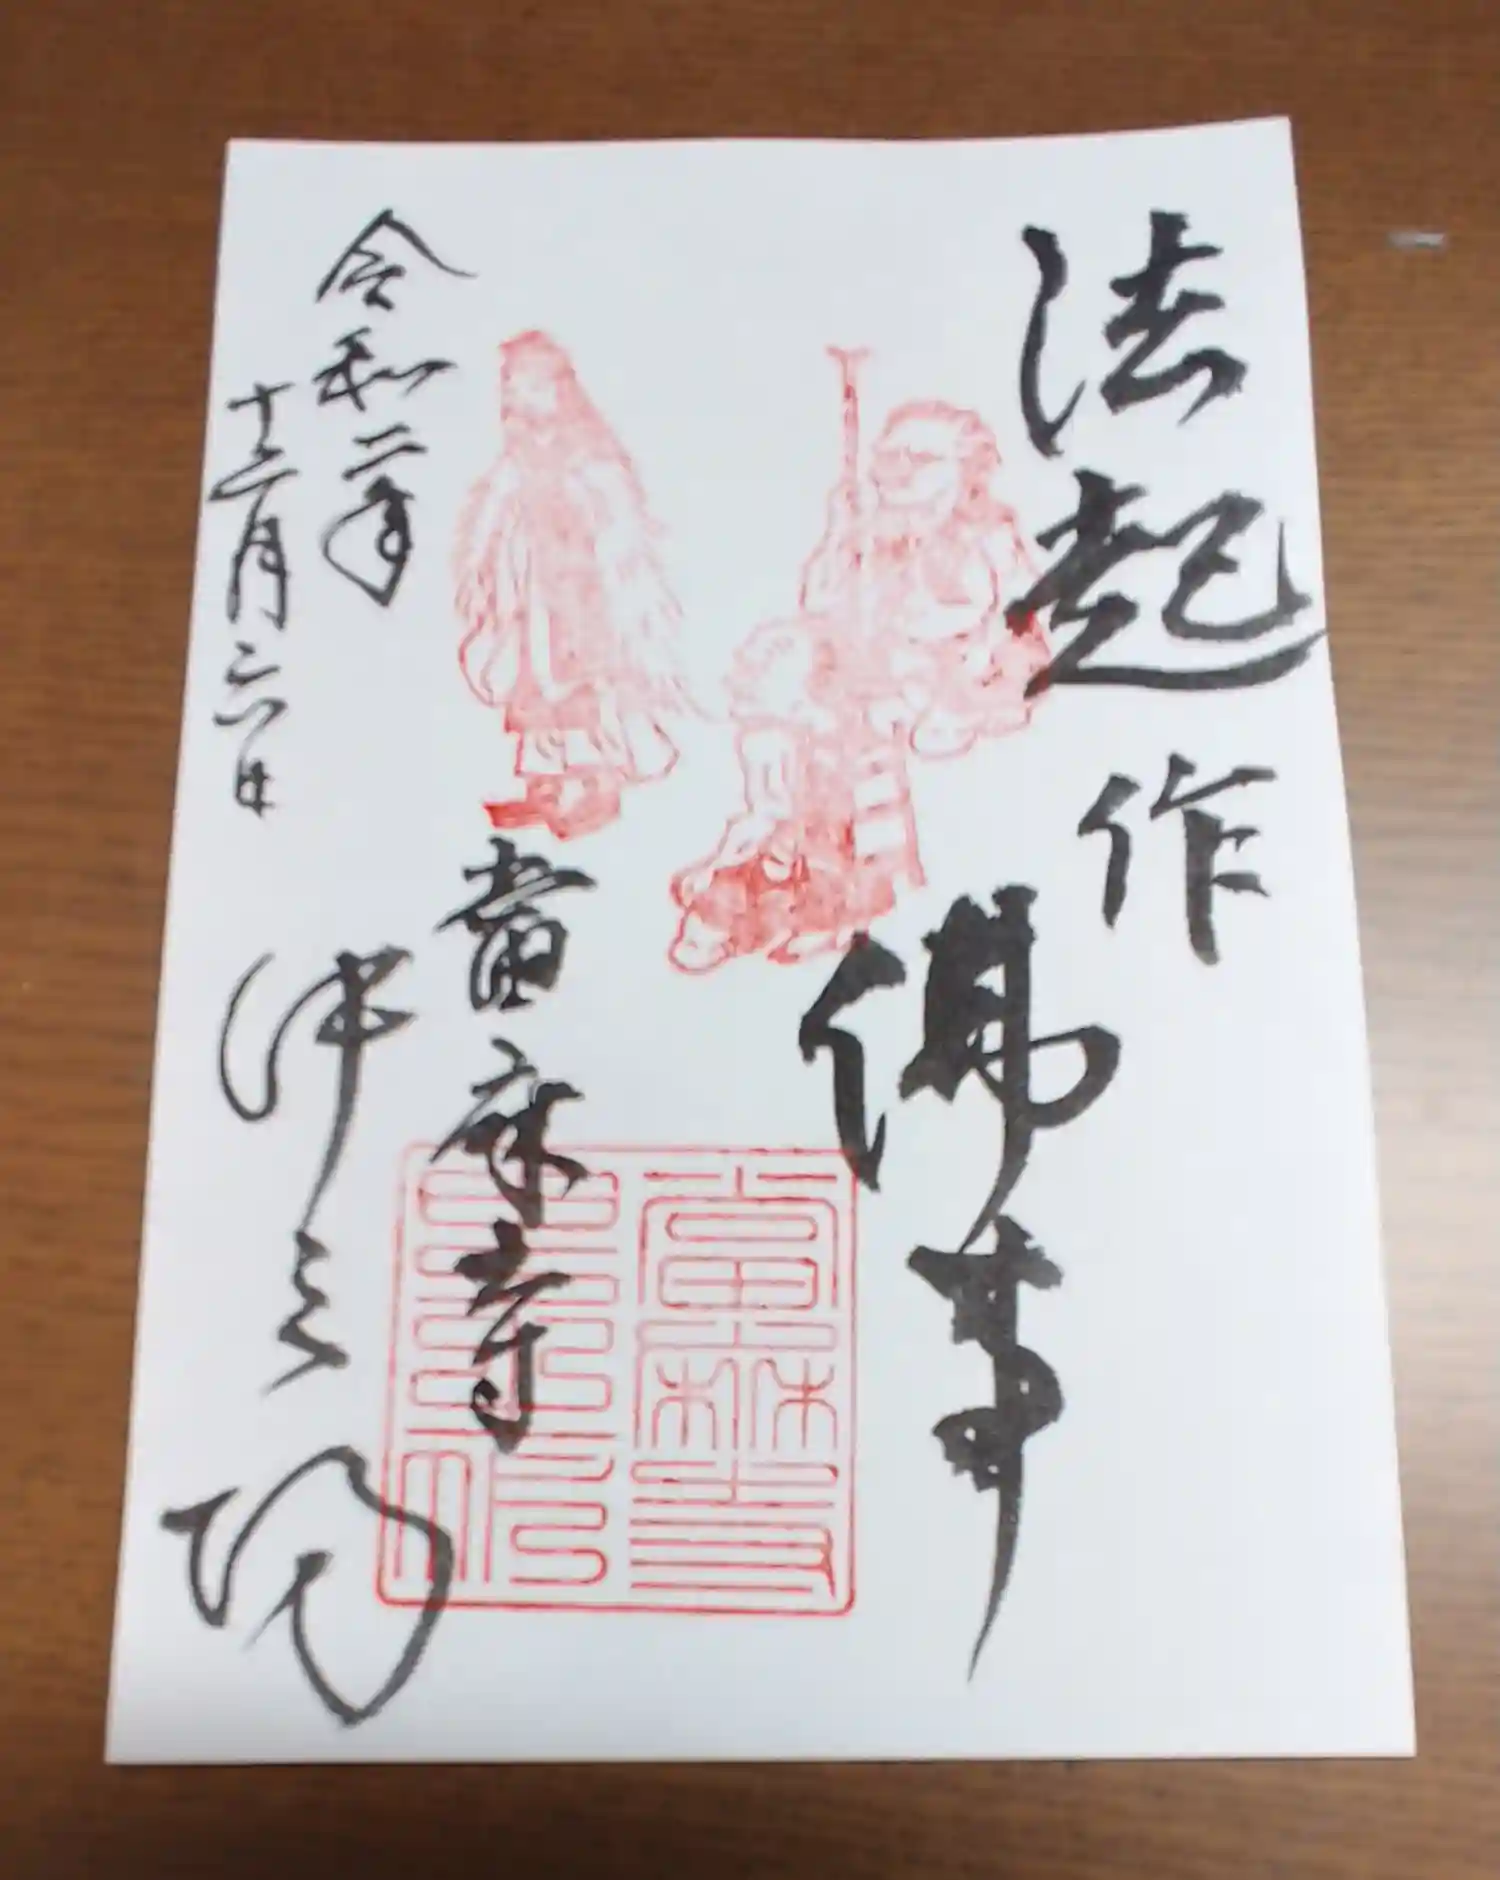 法起作
佛事
當麻寺
中之坊
令和二年
十二月六日
當麻寺